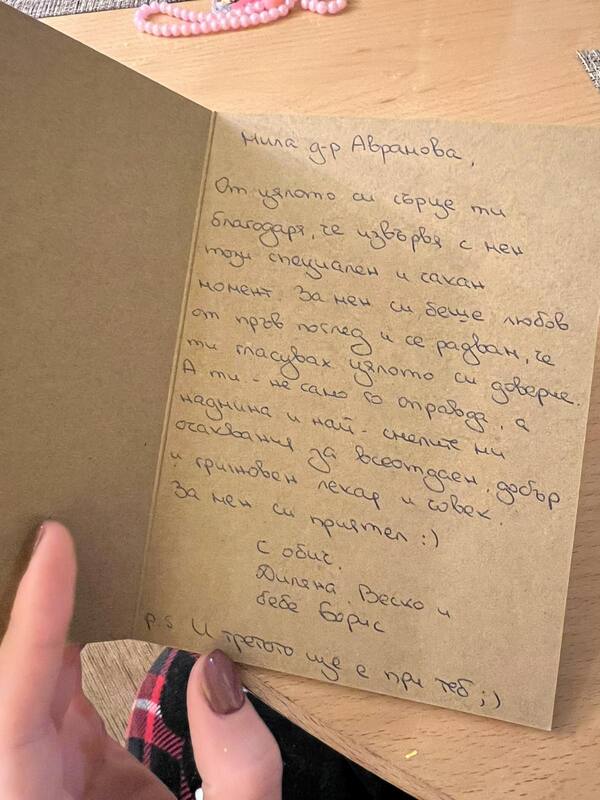 Мила д-р Авранова,
От цялото си сърце ти
благодаря, че извървя с мен
този специален и сакан
момент. За мен си беше любов
от пръв поглед и се радвам, че
ти гласувах цялото си доверие.
А ти - не само го оправда, а
надмина и най-смелите ми
очаквания за всеотдаен, добър
и грижовен лекар и човек.
За мен си приятел :)
С обич,
Диляна, Веско и
бебе Борис
p.s И третото ще е при теб ;)